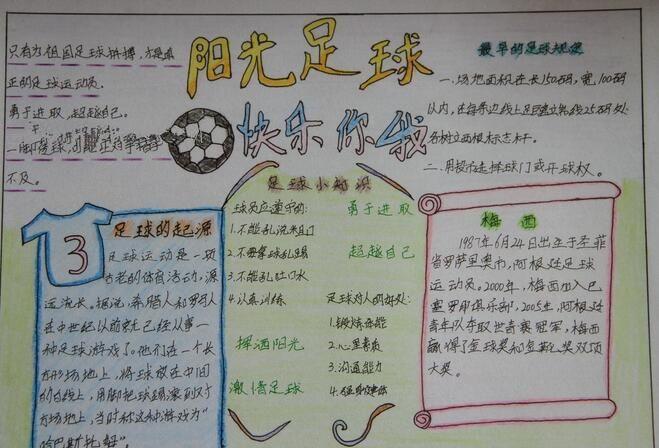 阳光足球
快乐你我
只有为祖国足球拼搏,才是真
正的足球运动员.
勇于进取,超越自己.
不及。
最早的足球规定
一.场地面积在长150码,宽100码
以内,在每条边线上距
25码处
各树立两根标志杆.
二.用投币选择球门或开球权.
足球的起源
3
足球运动是一项
古老的体育活动,源
远流长。据说,希腊人和罗马人
在中世纪以前就已经从事一
种足球游戏了。他们在一个长
方形场地上,将球放在中间
的白线上,用脚把球踢滚到对方
场地上,当时称这种游戏为"
哈巴斯托鞑".
足球小知识
球员应遵守的:
1.不能乱说来
2.不要拿球乱踢
3.不能乱吐口水
4.认真训练
勇于进取
超越自己
足球对人的好处:
1.锻炼体能
2.心里素质
3.沟通能力
挥洒阳光
激情足球
梅西
1987年6月24日出生于圣菲
省罗萨里奥市,阿根廷足球
运动员。2000年,梅西加入巴
塞罗那俱乐部,2005年,阿根廷
青年队夺取世青赛冠军,梅西
赢得了金球奖和金靴奖双项
大奖。